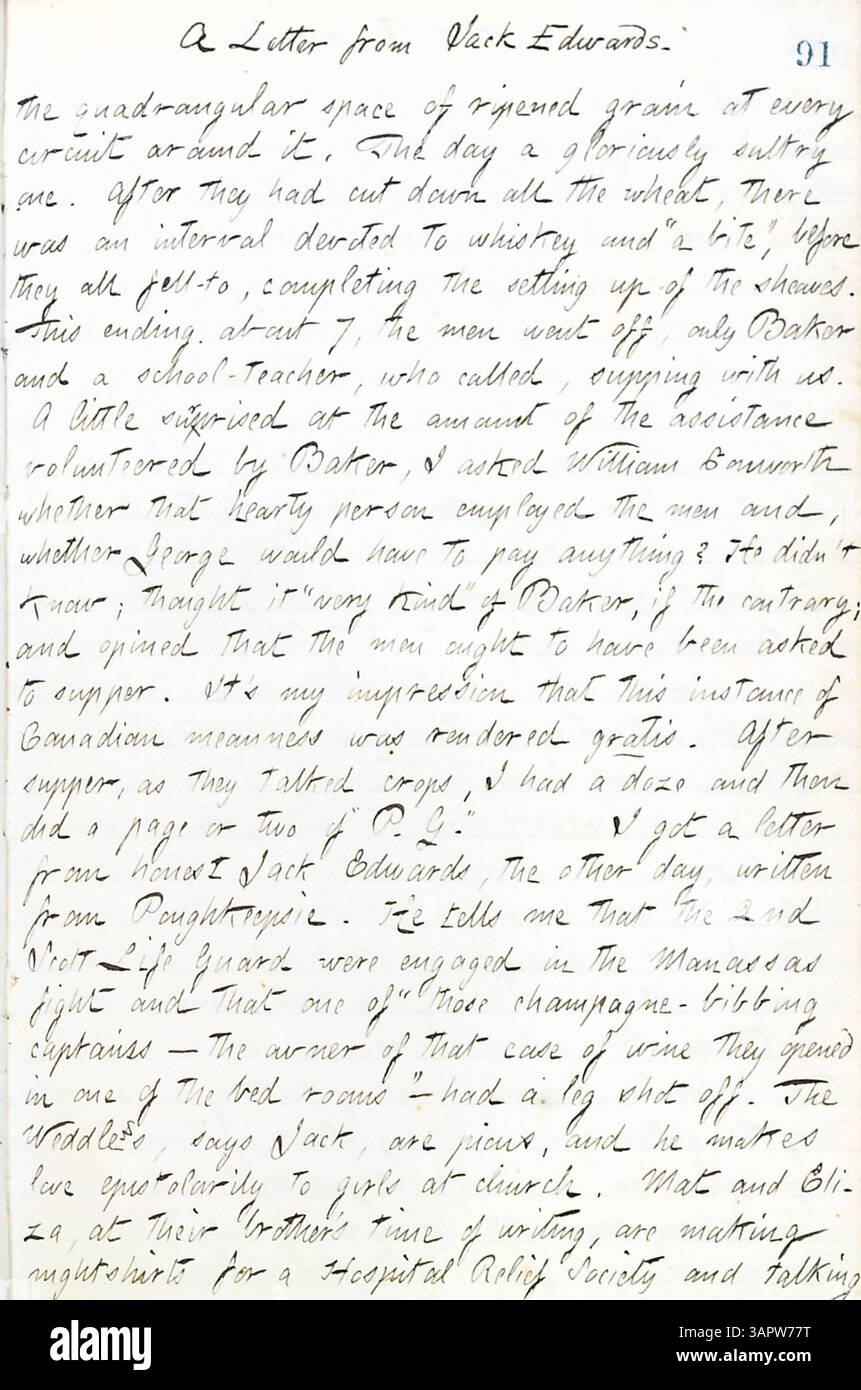 A Letter from Jack Edwards.
91
the quadrangular space of ripened grain at every
circuit around it. The day a gloriously sultry
one. After they had cut down all the wheat, there
was an interval devoted to whiskey and "a bite", before
they all fell-to, completing the setting up of the sheaves.
This ending about 7, the men went off, only Baker
and a school-teacher, who called, supping with us.
A little surprised at the amount of the assistance
volunteered by Baker, I asked William Conworth
whether that hearty person employed the men and,
whether George would have to pay anything? He didn't
know; thought it "very kind" of Baker, if the contrary;
and opined that the men ought to have been asked
to supper. It's my impression that this instance of
Canadian meanness was rendered gratis. After
supper, as they talked crops, I had a doze and then
did a page or two of "P. G." I got a letter
from honest Jack Edwards, the other day, written
from Poughkeepsie. He tells me that the 2nd
Scott Life Guard were engaged in the Manassas
fight and that one of "those champagne-bibbing
captains — the owner of that case of wine they opened
in one of the bed rooms" — had a leg shot off. The
says Jack, are pious, and he makes
love epistolarily to girls at church. Mat and Eli-
za, at their brother's time of writing, are making
nightshirts for a Hospital Relief Society and talking
alamy
Image ID: 3APW77T
www.alamy.com